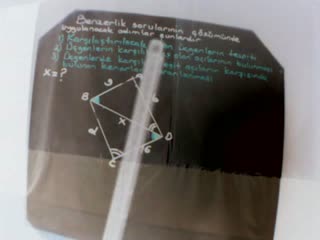 Benzerlik sorularının çözümünde
uygulanacak adımlar şunlardır
1) Karşılaştırılacak Üçgenlerin tespiti
2) Üçgenlerin karşılıklı eş olan açılarının bulunması
3) Üçgenlerde karşılıklı eşit açıların karşısında
bulunan kenarların oranlanması
x=?
9
B
x
D
6
C